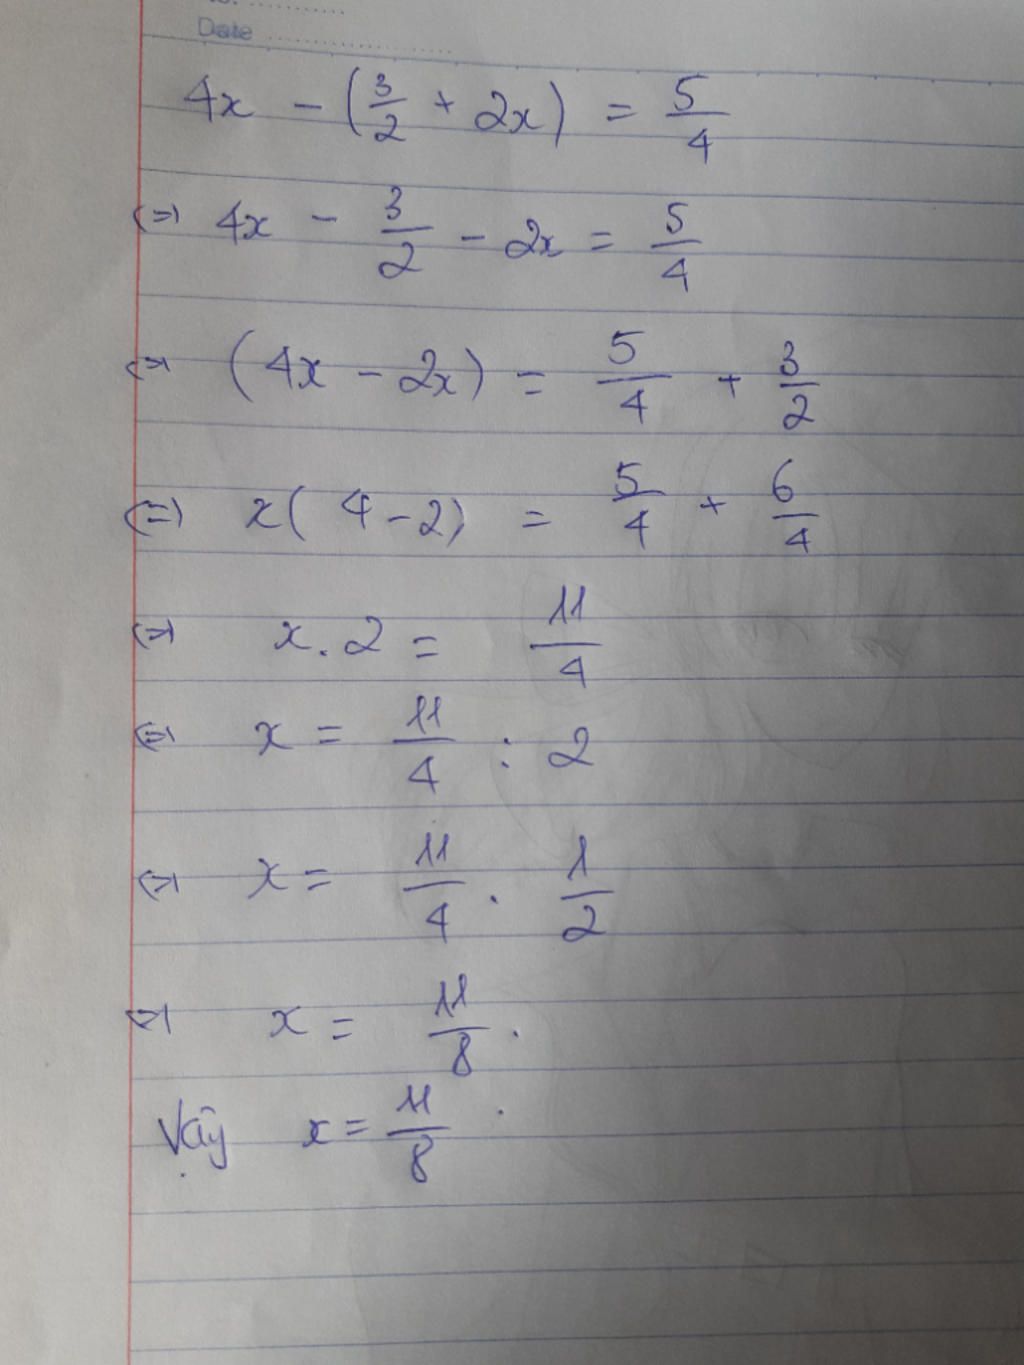 Date
4x - (3/2 + 2x) = 5/4
<=> 4x - 3/2 - 2x = 5/4
<=> (4x - 2x) = 5/4 + 3/2
<=> x(4-2) = 5/4 + 6/4
<=> x.2 = 11/4
<=> x = 11/4 : 2
<=> x = 11/4 . 1/2
<=> x = 11/8.
Vậy x = 11/8.